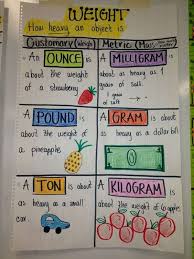 WEIGHT
How heavy an object is.
Customary (Weight)
Metric (Mass)
An OUNCE is
about the
weight of
a strawberry
A MILLIGRAM is
about as
heavy as 1
grain of
salt.
A POUND is
about the weight
of a
pineapple
A GRAM is
about as heavy
as a dollar bill
0
A TON is about
as heavy as a small
car
A KILOGRAM is
about the weight
of 6 apples